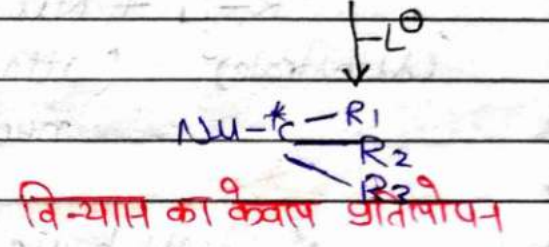 -L⊖
Nu-*C-R1
R2
R3
विन्यास का केवल प्रतिलोपन